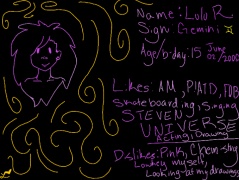 Name: Lulu R
Sign: Gemini
Age/b-day: 15 June 01/2000
Likes: AM, P!ATD, FOB
Skateboarding, Singing
STEVEN
UNIVERSE
Acting, Drawing
Dislikes: Pink,
myself,
Looking at my drawings